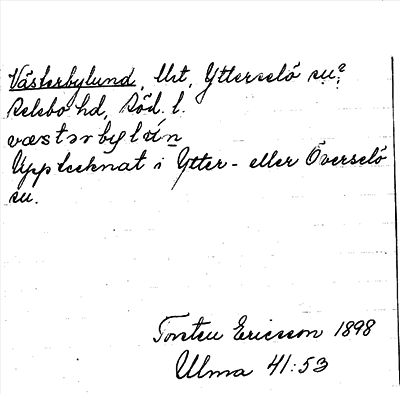 Västerbylund, Urt, Ytterselö sn?
Selebo hd, Söd. l.
væstərbylún
Upptecknat i Ytter- eller Överselö
sn.
Torsten Ericsson 1898
Ulma 41:53